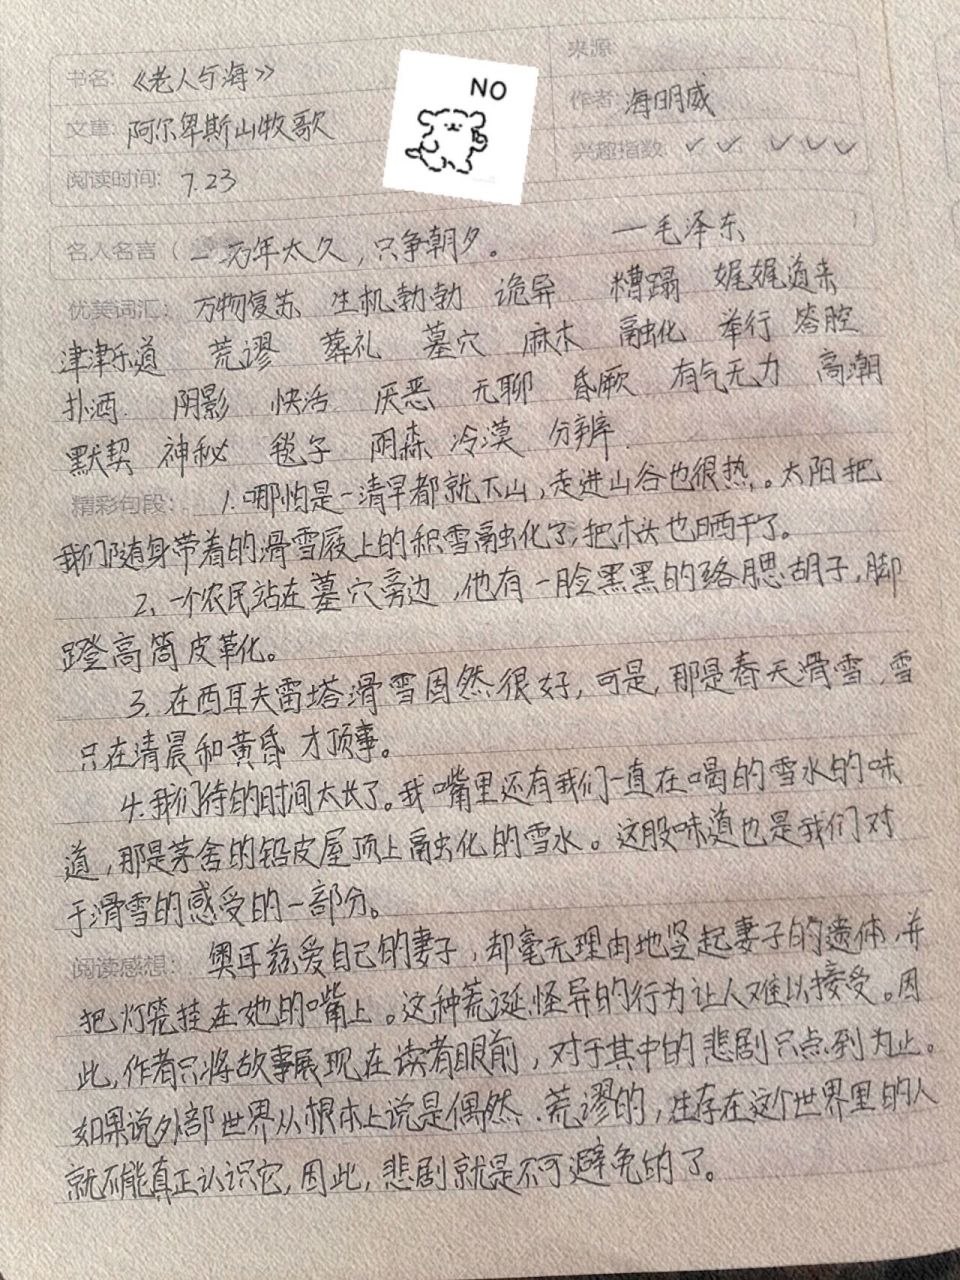 书名: 《老人与海》
来源:
NO
作者: 海明威
文章: 阿尔卑斯山牧歌
兴趣指数: ✓ ✓ ✓ ✓ ✓
阅读时间: 7.23
名人名言 ( 一万年太久，只争朝夕。 —毛泽东
优美词汇: 万物复苏 生机勃勃 诡异 糟蹋 娓娓道来
津津乐道 荒谬 葬礼 墓穴 麻木 融化 举行 答腔
扑洒 阴影 快活 厌恶 无聊 昏厥 有气无力 高潮
默契 神秘 毯子 阴森 冷漠 分辨
精彩句段: 1. 哪怕是一清早都就下山，走进山谷也很热。太阳把
我们随身带着的滑雪屐上的积雪融化了，把木头也晒干了。
2、一个农民站在墓穴旁边，他有一脸黑黑的络腮胡子，脚
蹬高筒皮靴。
3、在西耳夫雷塔滑雪固然很好，可是，那是春天滑雪，雪
只在清晨和黄昏才顶事。
4.我们待的时间太长了。我嘴里还有我们一直在喝的雪水的味
道，那是茅舍的铅皮屋顶上融化的雪水。这股味道也是我们对
于滑雪的感受的一部分。
阅读感想: 奥耳兹爱自己的妻子，却毫无理由地竖起妻子的遗体，并
把灯笼挂在她的嘴上。这种荒诞怪异的行为让人难以接受。因
此，作者只将故事展现在读者眼前，对于其中的悲剧只点到为止。
如果说外部世界从根本上说是偶然、荒谬的，生存在这个世界里的人
就不能真正认识它，因此，悲剧就是不可避免的了。